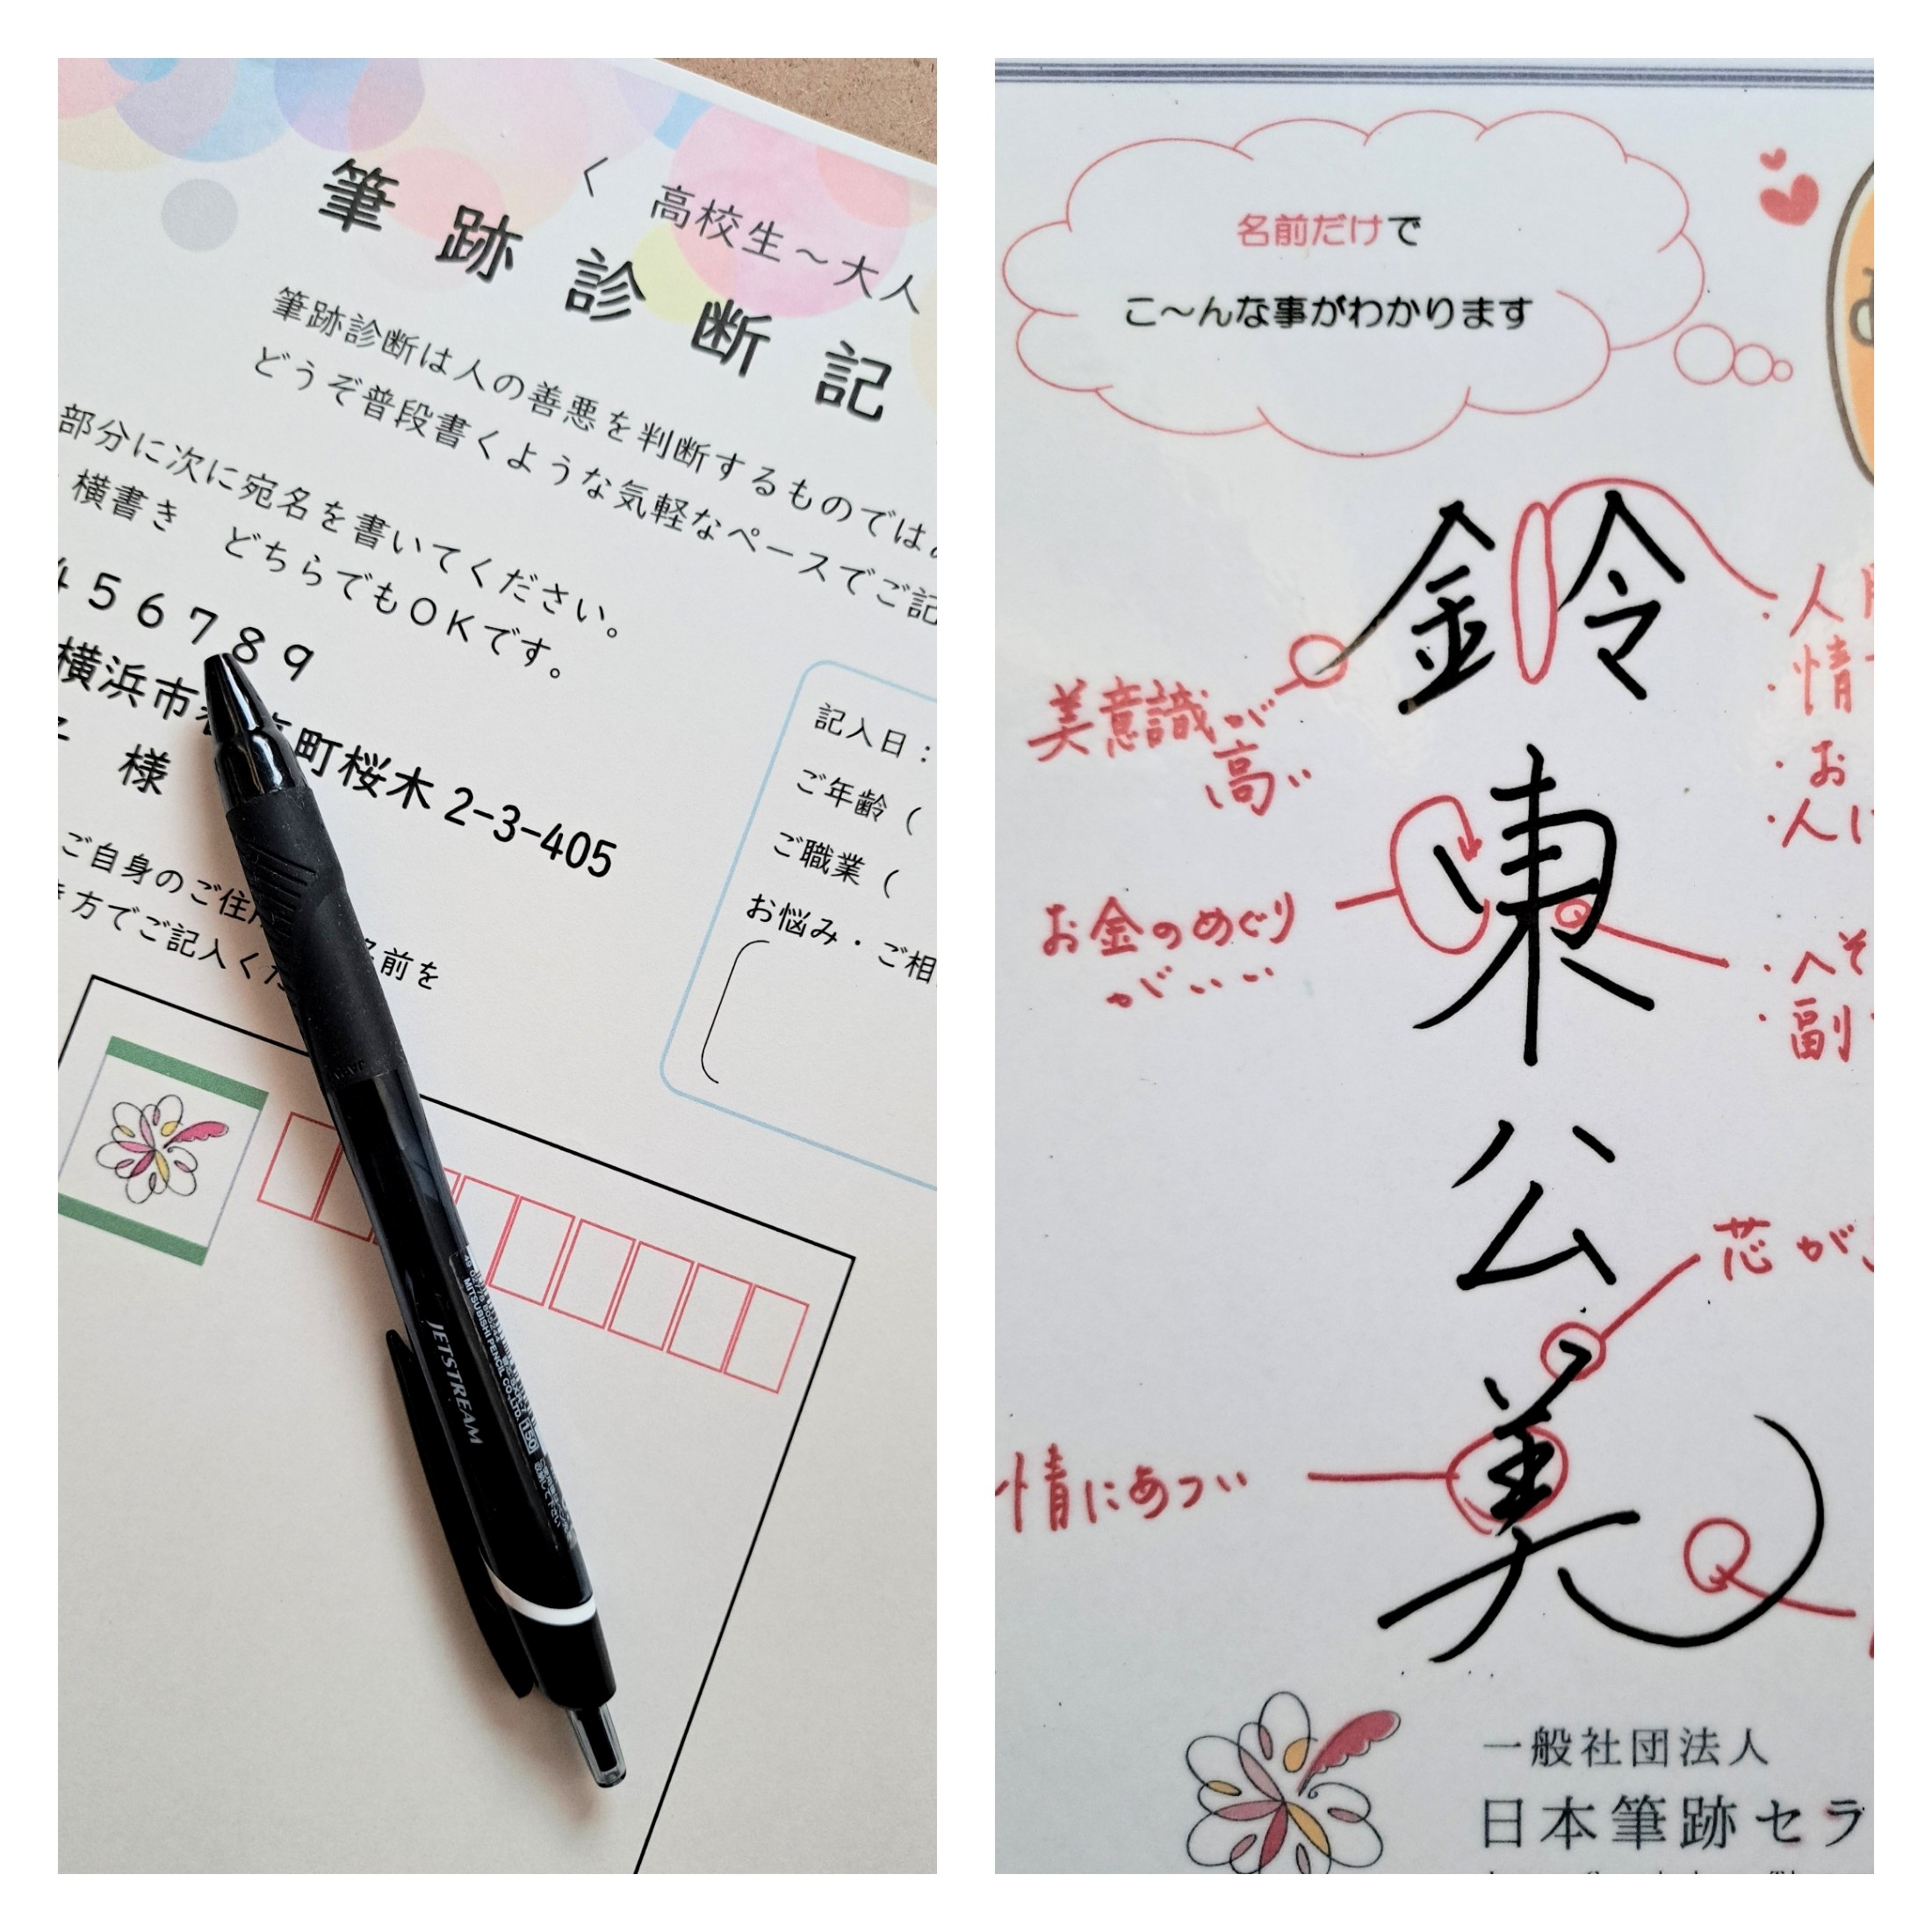 < 高校生～大人
筆跡診断記
筆跡診断は人の善悪を判断するものでは
どうぞ普段書くような気軽なペースでご記
部分に次に宛名を書いてください。
横書き どちらでもOKです。
456789
横浜市 町桜木2-3-405
様
ご自身のご住 名前を
き方でご記入くだ
記入日：
ご年齢（
ご職業（
お悩み・ご相
JETSTREAM
MITSUBISHI PENCIL CO.,LTD.
150
名前だけで
こ～んな事がわかります
鈴東公美
美意識が
高い
お金のめぐり
がいい
情にあつい
・人
・情
・お
・人に
・へそ
・副
芯が
一般社団法人
日本筆跡セラ